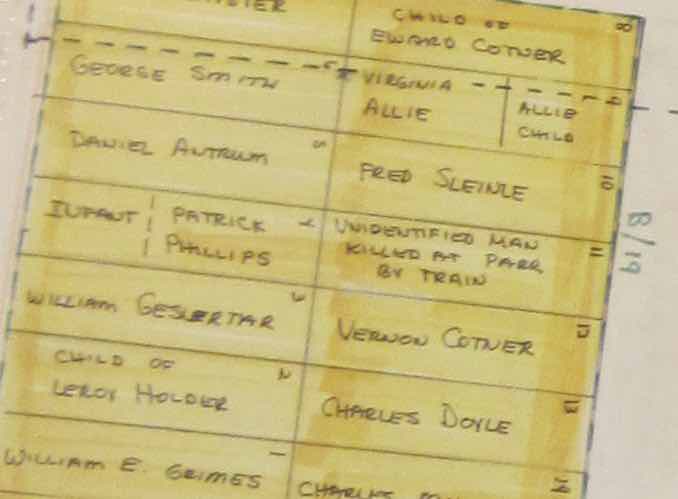 CHILD OF
EWARD COTNER
8
GEORGE SMITH
VIRGINIA
ALLIE
ALLIE
CHILD
9
DANIEL ANTRUM
5
FRED SLEINLE
10
INFANT
PATRICK
PHILLIPS
4
UNIDENTIFIED MAN
KILLED AT PARR
BY TRAIN
11
WILLIAM
3
VERNON COTNER
12
CHILD OF
LEROY HOLDER
2
CHARLES DOYLE
13
WILLIAM E. GRIMES
1
CHARLES
14
8/19